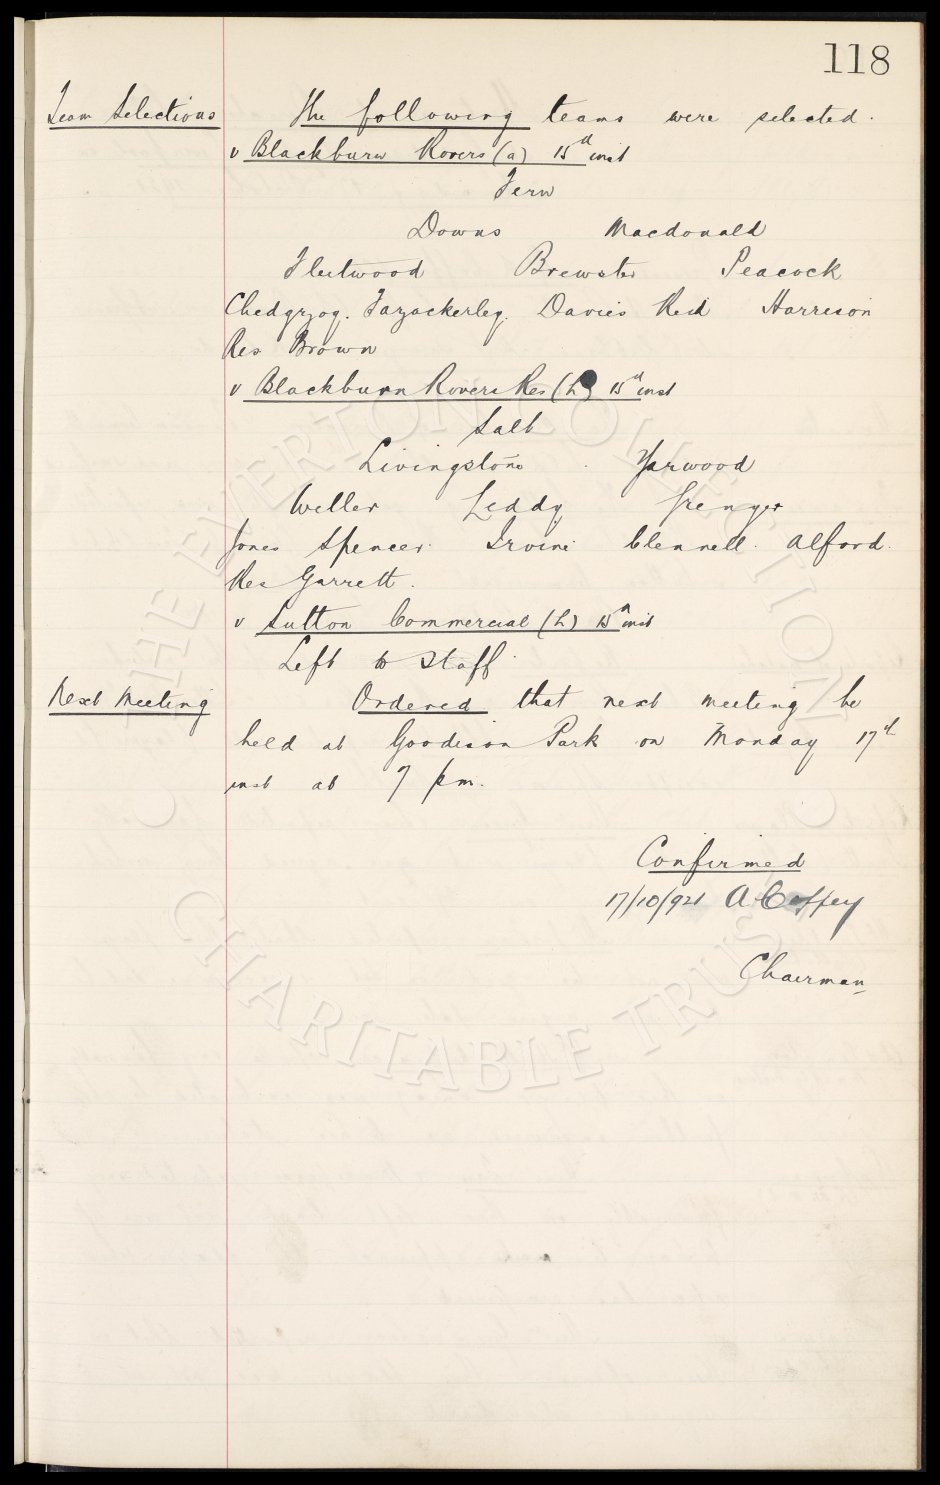 118
Team Selections The following teams were selected.
v Blackburn Rovers (a) 15th inst
Fern
Downs Macdonald
Fleetwood Brewster Peacock
Chedgzoy. Fazackerley. Davies Reid Harrison
Res Brown
v Blackburn Rovers Res (h) 15th inst
Salt
Livingstone Yarwood
Weller Leddy Grenyer
Jones Spencer. Irvine Clennell. Alford.
Res Garrett.
v Sutton Commercial (h) 15th inst
Left to Staff.
Next Meeting Ordered that next meeting be
held at Goodison Park on Monday 17th
inst at 7 pm.
Confirmed
17/10/921 A. Coffey
Chairman
THE EVERTON COLLECTION
CHARITABLE TRUST